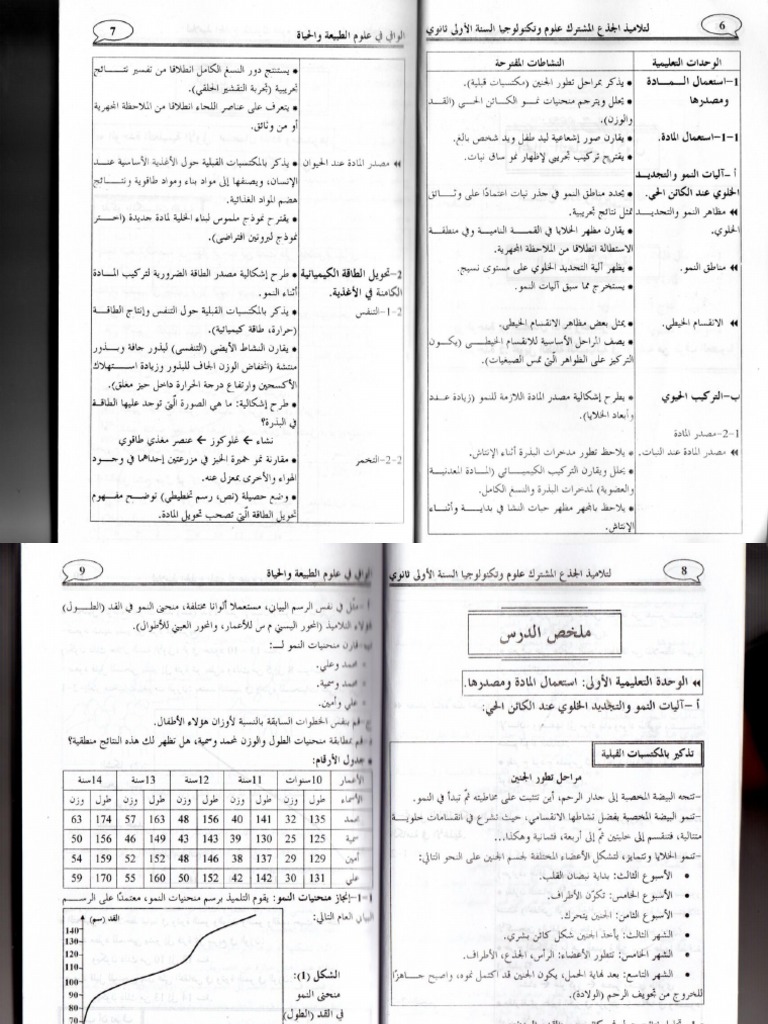 6
لتلاميذ الجذع المشترك علوم وتكنولوجيا السنة الأولى ثانوي
الوحدات التعليمية
النشاطات المقترحة
1-استعمال المادة
ومصدرها
1-1-استعمال المادة.
أ-آليات النمو والتجديد
الخلوي عند الكائن الحي.
مظاهر النمو والتجديد
الخلوي.
مناطق النمو.
الانقسام الخيطي.
ب-التركيب الحيوي
1-2-مصدر المادة
مصدر المادة عند النبات.
• يذكر بمراحل تطور الجنين (مكتسبات قبلية).
• يحلل ويترجم منحنيات نمو الكائن الحي (القد
والوزن).
• يقارن صور إشعاعية ليد طفل ويد شخص بالغ.
• يقترح تركيب تجريبي لإظهار نمو ساق نبات.
• يحدد مناطق النمو في جذر نبات اعتمادًا على وثائق
تمثل نتائج تجريبية.
• يقارن مظهر الخلايا في القمة النامية وفي منطقة
الاستطالة انطلاقا من الملاحظة المجهرية.
• يظهر آلية التجديد الخلوي على مستوى نسيج.
• يستخرج مما سبق آليات النمو.
• يمثل بعض مظاهر الانقسام الخيطي.
• يصف المراحل الأساسية للانقسام الخيطي (يكون
التركيز على الظواهر الّتي تمس الصبغيات).
• يطرح إشكالية مصدر المادة اللازمة للنمو (زيادة عدد
وأبعاد الخلايا).
• يلاحظ تطور مدخرات البذرة أثناء الإنتاش.
• يحلل ويقارن التركيب الكيميائي (المادة المعدنية
والعضوية) لمدخرات البذرة والنسغ الكامل.
• يلاحظ بالمجهر مظهر حبات النشا في بداية وأثناء
الإنتاش.
الوافي في علوم الطبيعة والحياة
7
• يستنتج دور النسغ الكامل انطلاقا من تفسير نتائج
تجريبية (تجربة التقشير الحلقي).
• يتعرف على عناصر اللحاء انطلاقا من الملاحظة المجهرية
أو من وثائق.
مصدر المادة عند الحيوان
• يذكر بالمكتسبات القبلية حول الأغذية الأساسية عند
الإنسان، ويصنفها إلى مواد بناء ومواد طاقوية ونتائج
هضم المواد الغذائية.
• يقترح نموذج ملموس لبناء الخلية لمادة جديدة (اختر
نموذج لبروتين افتراضي).
2-تحويل الطاقة الكيميائية
الكامنة في الأغذية.
1-2-التنفس
• طرح إشكالية مصدر الطاقة الضرورية لتركيب المادة
أثناء النمو.
• يذكر بالمكتسبات القبلية حول التنفس وإنتاج الطاقة
(حرارة، طاقة كيميائية).
• يقارن النشاط الأيضي (التنفسي) لبذور جافة وبذور
منتشة (انخفاض الوزن الجاف للبذور وزيادة استهلاك
الأكسجين وارتفاع درجة الحرارة داخل حيز مغلق).
• طرح إشكالية: ما هي الصورة الّتي توجد عليها الطاقة
في البذرة؟
نشاء ← غلوكوز ← عنصر مغذي طاقوي
2-2-التخمر
• مقارنة نمو خميرة الخبز في مزرعتين إحداهما في وجود
الهواء والأخرى بمعزل عنه.
• وضع حصيلة (نص، رسم تخطيطي) توضح مفهوم
تحويل الطاقة الّتي تصحب تحويل المادة.
8
لتلاميذ الجذع المشترك علوم وتكنولوجيا السنة الأولى ثانوي
ملخص الدرس
الوحدة التعليمية الأولى: استعمال المادة ومصدرها.
أ-آليات النمو والتجديد الخلوي عند الكائن الحي:
تذكير بالمكتسبات القبلية
مراحل تطور الجنين
-تتجه البيضة المخصبة إلى جدار الرحم، أين تتثبت على مخاطيته ثمّ تبدأ في النمو.
-تنمو البيضة المخصبة بفضل نشاطها الانقسامي، حيث تشرع في انقسامات خلوية
متتالية، فتنقسم إلى خليتين ثمّ إلى أربعة، فثمانية وهكذا...
-تنمو الخلايا وتتمايز، لتشكل الأعضاء المختلفة لجسم الجنين على النحو التالي:
• الأسبوع الثالث: بداية نبضان القلب.
• الأسبوع الخامس: تكوّن الأطراف.
• الأسبوع الثامن: الجنين يتحرك.
• الشهر الثالث: يأخذ الجنين شكل كائن بشري.
• الشهر الخامس: تتطور الأعضاء: الرأس، الجذع، الأطراف.
• الشهر التاسع: بعد نهاية الحمل، يكون الجنين قد اكتمل نموه، واصبح جاهزًا
للخروج من تجويف الرحم (الولادة).
الوافي في علوم الطبيعة والحياة
9
أ-مثّل في نفس الرسم البياني، مستعملا ألوانا مختلفة، منحنى النمو في القد (الطول)
لهؤلاء التلاميذ (المحور السيني م س للأعمار، والمحور العيني للأطوال).
ب-قارن منحنيات النمو لــ:
محمد وعلي.
محمد وسمية.
علي وأمين.
ج-قم بنفس الخطوات السابقة بالنسبة لأوزان هؤلاء الأطفال.
د-قم بمطابقة منحنيات الطول والوزن لمحمد وسمية، هل تظهر لك هذه النتائج منطقية؟
• جدول الأرقام:
الأعمار 10سنوات 11سنة 12سنة 13سنة 14سنة
الأسماء طول وزن طول وزن طول وزن طول وزن طول وزن
محمد 135 32 141 40 156 48 163 57 174 63
سمية 125 25 130 39 143 43 149 46 156 50
أمين 129 29 137 38 146 48 152 52 159 54
علي 131 30 142 42 152 50 160 55 170 59
1-1-إنجاز منحنيات النمو: يقوم التلميذ برسم منحنيات النمو، معتمدًا على الرسم
البياني العام التالي:
القد (سم)
140
130
120
110
100
90
80
70
الشكل (1):
منحنى النمو
في القد (الطول)